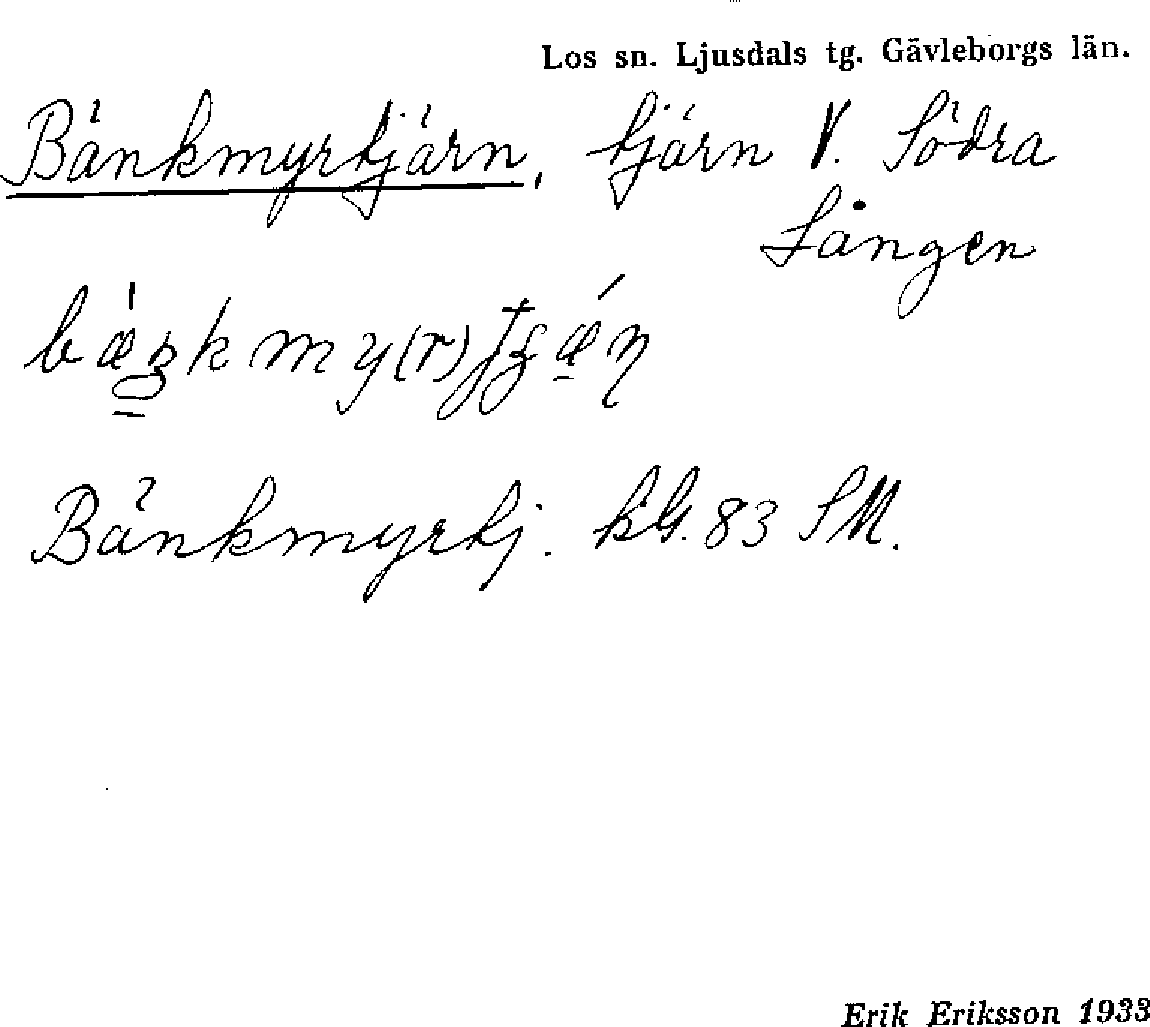 Los sn. Ljusdals tg. Gävleborgs län.
Bänkmyrtjärn, tjärn V. Södra
Lången
Bänkmyrtj. kbl. 83 SM.
Erik Eriksson 1933